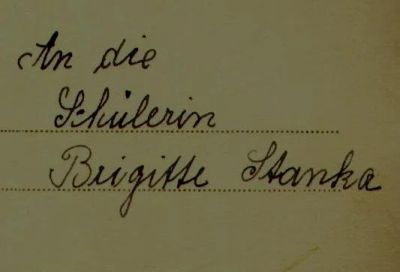 An die
Schülerin
Brigitte Stanka